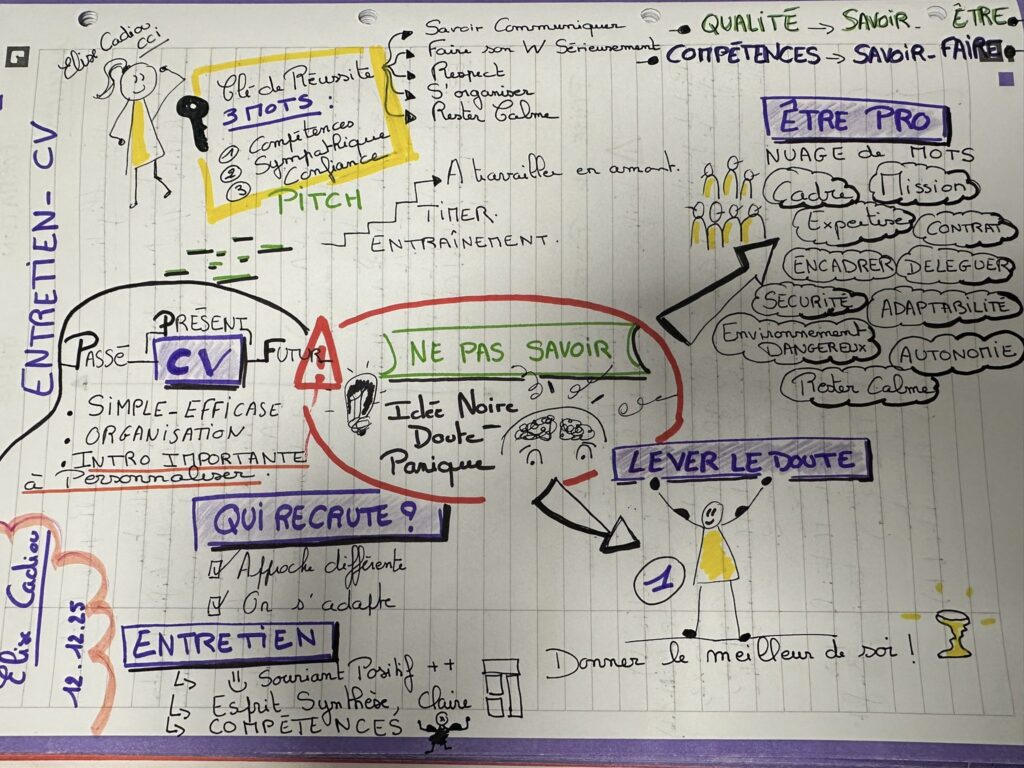 Elise Cadiou
CCI
Clé de Réussite
3 MOTS :
① Compétences
② Sympathique
③ Confiance
Savoir Communiquer
Faire son W Sérieusement
Respect
S'organiser
Rester Calme
QUALITÉ → SAVOIR - ÊTRE
COMPÉTENCES → SAVOIR-FAIRE
ENTRETIEN-CV
PITCH
A travailler en amont.
TIMER.
ENTRAÎNEMENT.
ÊTRE PRO
NUAGE de MOTS
Cadre
Mission
Expertise
CONTRAT
ENCADRER
DELEGUER
SECURITÉ
ADAPTABILITÉ
Environnement
DANGEREUX
AUTONOMIE
Rester Calme
PASSÉ
PRÉSENT
FUTUR
CV
• SIMPLE-EFFICASE
• ORGANISATION
• INTRO IMPORTANTE
à Personnaliser.
!
NE PAS SAVOIR
Idée Noire
Doute
Panique
LEVER LE DOUTE
1
Donner le meilleur de soi !
QUI RECRUTE ?
Approche différente
On s'adapte
ENTRETIEN
Souriant Positif ++
Esprit Synthèse, Claire
COMPÉTENCES
Elise Cadiou
12.12.25